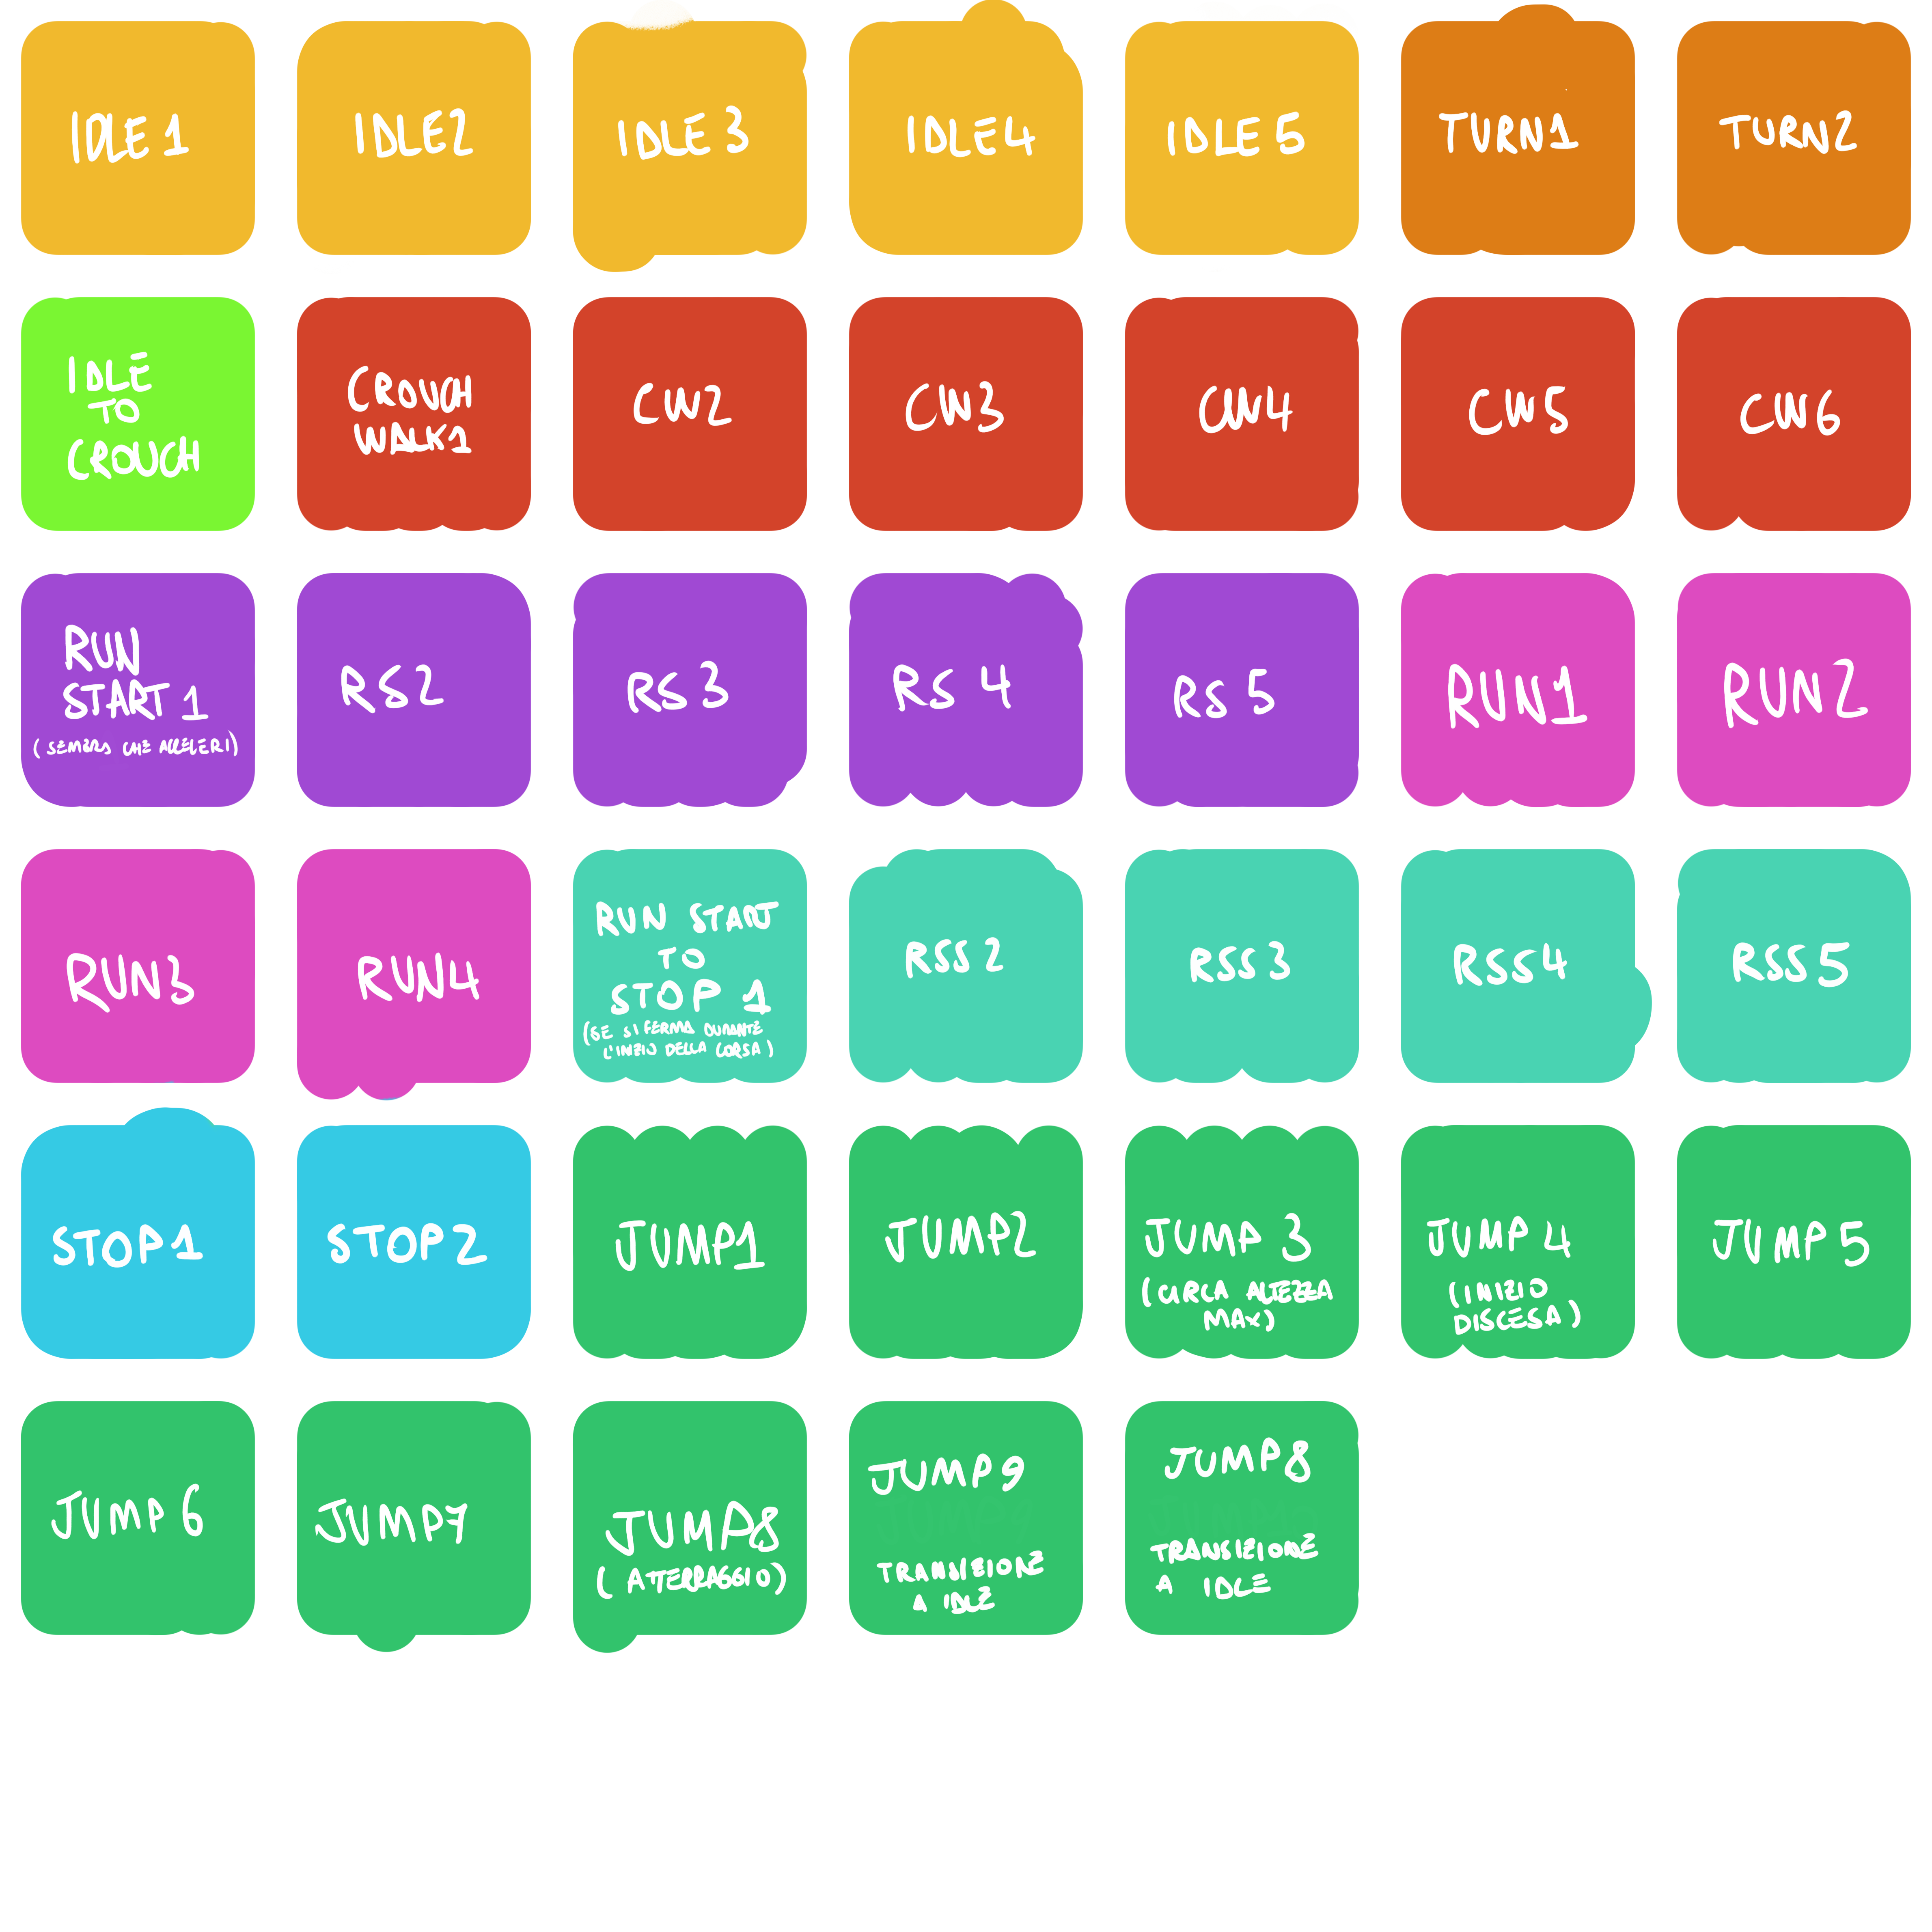 IDLE 1
IDLE2
IDLE 3
IDLE4
IDLE 5
TURN1
TURN2
IDLE
TO
CROUCH
CROUCH
WALK1
CW2
CW3
CW4
CW5
CW6
RUN
START 1
(SEMBRA CHE ACCELERI)
RS2
RS3
RS4
RS5
RUN1
RUN2
RUN3
RUN4
RUN START
TO
STOP 1
(SE SI FERMA DURANTE
L'INIZIO DELLA CORSA)
RSS2
RSS3
RSS4
RSS5
STOP1
STOP2
JUMP1
JUMP2
JUMP 3
(CIRCA ALTEZZA
MAX)
JUMP 4
(INIZIO
DISCESA)
JUMP 5
JUMP 6
JUMP7
JUMP8
(ATERRAGGIO)
JUMP9
TRANSIZIONE
A IDLE
JUMP8
TRANSIZIONE
A IDLE